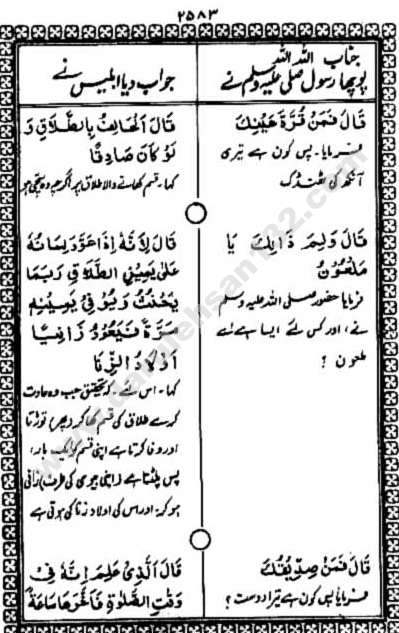 ۲۵۸۳
جناب اللہ اللہ
پوچھا رسول صلی علیہ وسلم نے
قَالَ فَمَنْ قُرَّةُ عَيْنِكَ
فرمایا۔ پس کون ہے تیری
آنکھ کی ٹھنڈک
قَالَ وَلِمَ ذَالِكَ يَا
مَلْعُوْنُ
فرمایا حضور صلی اللہ علیہ وسلم
نے، اور کس لئے ایسا ہے اے
ملعون ؟
قَالَ فَمَنْ صِدِّيْقُكَ
فرمایا پس کون ہے تیرا دوست ؟
جواب دیا ابلیس نے
قَالَ الْحَالِفُ بِالطَّلَاقِ وَ
لَوْ كَانَ صَادِقًا
کہا۔ قسم کھانے والا طلاق پر اگرچہ وہ سچی ہو
قَالَ لِاَنَّهٗ اِذَا عَوَّدَ لِسَانَهٗ
عَلٰى يَمِيْنِ الطَّلَاقِ رُبَمَا
يَحْنَثُ وَيَبَرُّ فِيْ يَمِيْنِهٖ
مَرَّةً فَيَعُوْدُ زَانِيًا
اَوْلَادُ الزِّنَا
کہا۔ اس لئے۔ کہ تحقیق جب وہ عادت
کرے طلاق کی قسم کھا کر (پھر) توڑتا
اور وفا کرتا ہے اپنی قسم کو ایک بار،
پس پلٹتا ہے (اپنی بیوی کی طرف) زانی
ہو کر، اور اس کی اولاد زنا کی ہوتی ہے
قَالَ الَّذِيْ عَلِمَ اِنَّهٗ فِيْ
وَقْتِ الصَّلٰوةِ فَاَخَّرَهَا سَاعَةً
www.darulehsan132.com